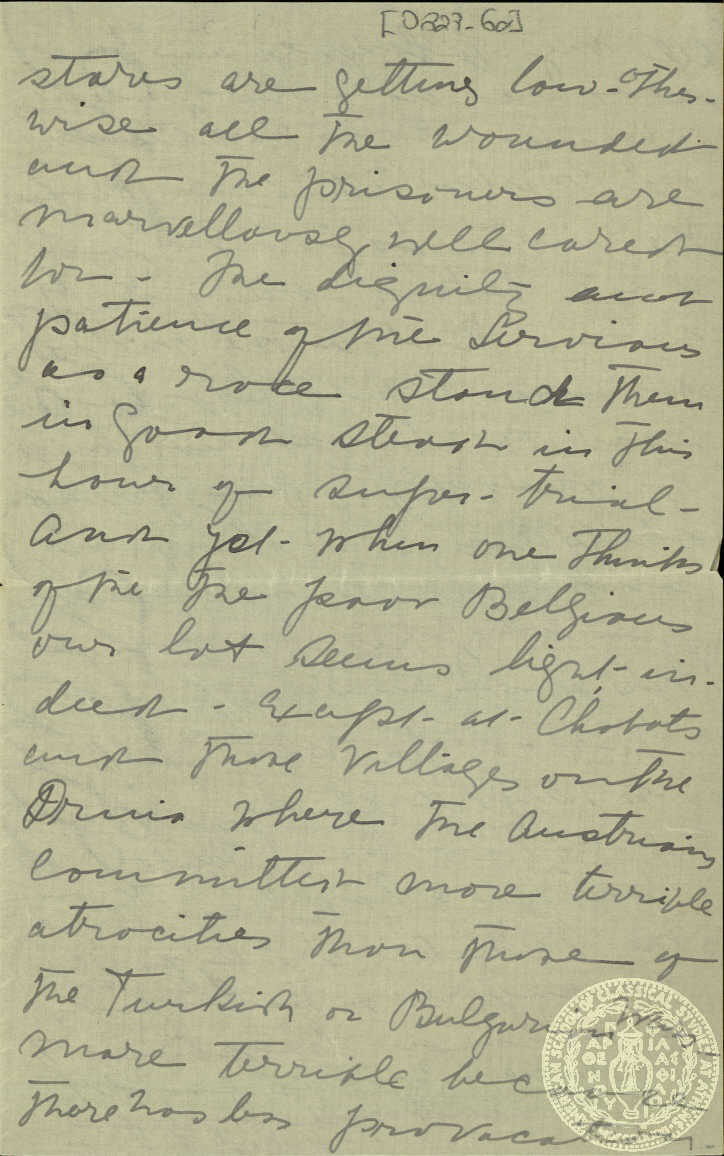 [D227-62]
stores are getting low. Other-
wise all the wounded
and the prisoners are
marvellously well cared
for - The dignity and
patience of the Servians
as a race stand them
in good stead in this
hour of super-trial -
And yet - when one thinks
of the the poor Belgians
our lot seems light in-
deed - Except at Chabats
and those villages on the
Drina where the Austrians
committed more terrible
atrocities than those of
the Turkish or Bulgarian Wars
more terrible because
there has less provocation -